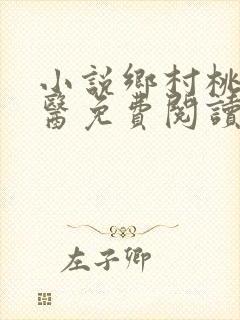 小説鄉村桃
醫免費閱讀
左子卿